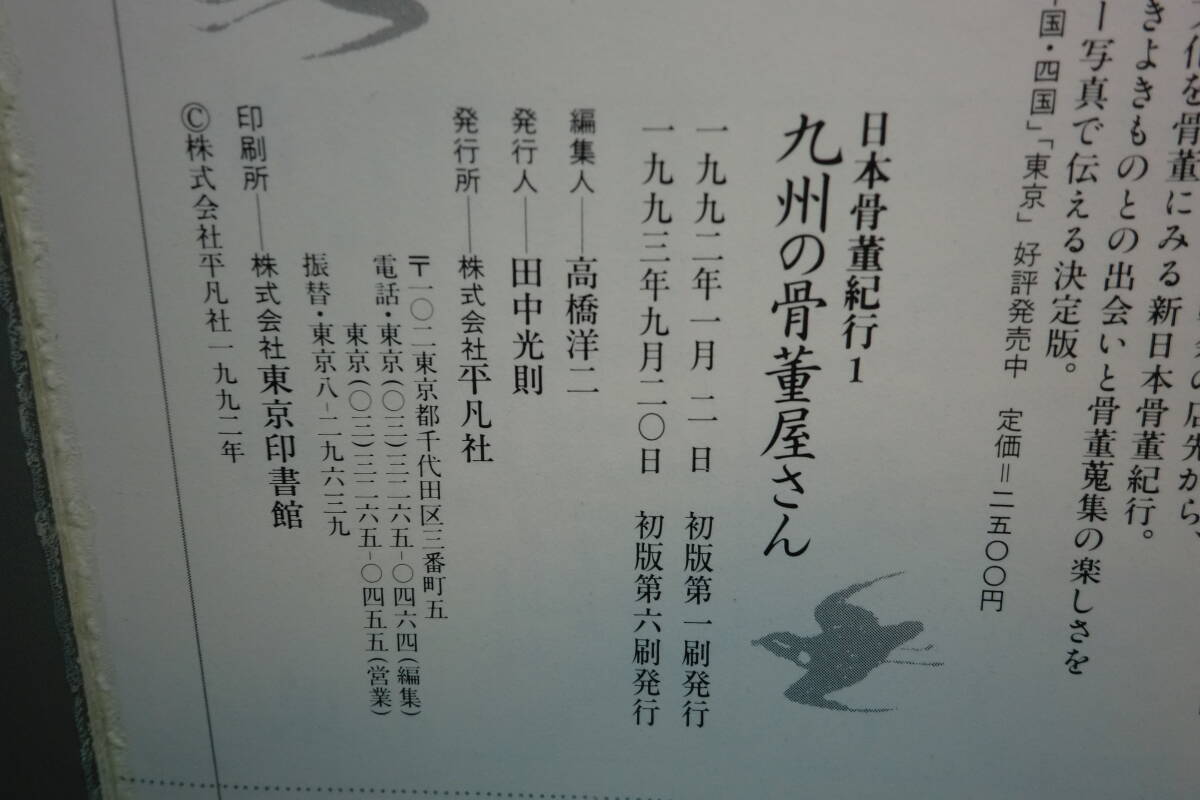 の店先から、
化を骨董にみる新日本骨董紀行。
きよきものとの出会いと骨董蒐集の楽しさを
ー写真で伝える決定版。
国・四国」「東京」 好評発売中 定価=二五〇〇円
日本骨董紀行1
九州の骨董屋さん
一九九二年一月二一日 初版第一刷発行
一九九三年九月二〇日 初版第六刷発行
編集人――高橋洋二
発行人――田中光則
発行所――株式会社平凡社
〒一〇二東京都千代田区三番町五
電話・東京(〇三)三二六五-〇四六四(編集)
東京(〇三)三二六五-〇四五五(営業)
振替・東京八-二九六三九
印刷所――株式会社東京印書館
©株式会社平凡社一九九二年